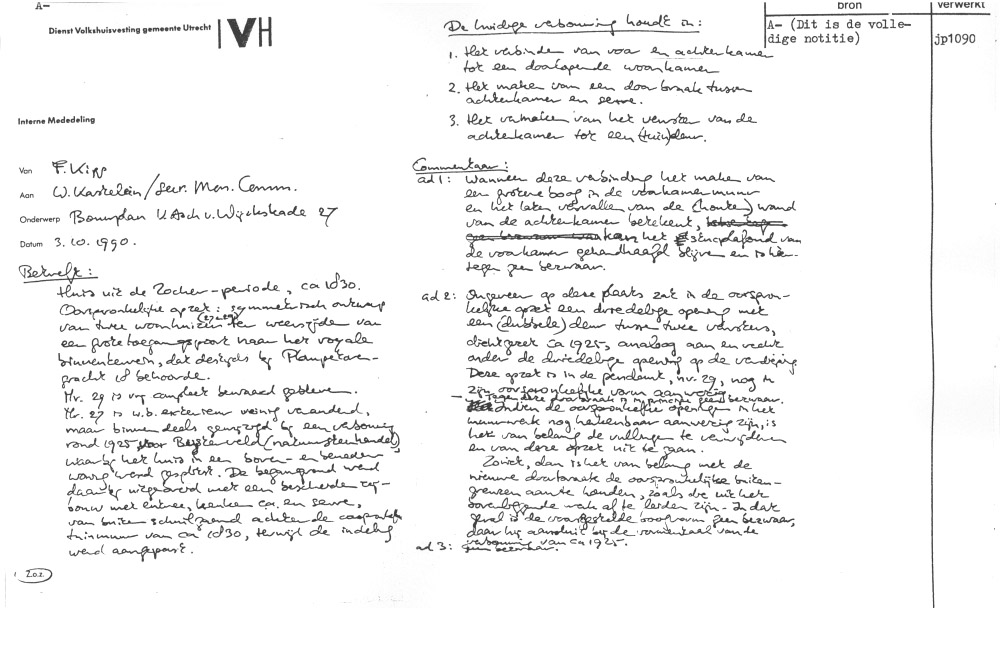 A-
Dienst Volkshuisvesting gemeente Utrecht
VH
Interne Mededeling
Van F. Kipp
Aan W. Kastelein / Secr. Mon. Comm.
Onderwerp Bouwplan V. Asch v. Wijckskade 27
Datum 3.10.1990.
Betreft:
Huis uit de Zocher-periode, ca 1830.
Oorspronkelijke opzet: symmetrisch ontwerp
van twee woonhuizen (27+29) ter weerszijde van
een grote toegangspoort naar het royale
binnenterrein, dat destijds bij Plompetoren-
gracht 18 behoorde.
Nr. 29 is vrij compleet bewaard gebleven.
Nr. 27 is w.b. exterieur weinig veranderd,
maar binnen deels gewijzigd bij een verbouwing
rond 1925 voor Beysterveld (natuursteenhandel)
waarbij het huis in een boven- en beneden-
woning werd gesplitst. De begane grond werd
daarbij uitgebreid met een bescheiden zij-
bouw met entree, keuken ca. en serre,
van buiten schuilgaand achter de
tuinmuur van ca 1830, terwijl de indeling
werd aangepast.
z.o.z.
De huidige verbouwing houdt in:
1. Het verbinden van voor en achterkamer
tot een doorlopende woonkamer
2. Het maken van een doorbraak tussen
achterkamer en serre.
3. Het vermaken van het venster van de
achterkamer tot een (tuin)deur.
Commentaar:
ad 1: Wanneer deze verbinding het maken van
een grotere boog in de voorkamermuur
en het laten vervallen van de (houten) wand
van de achterkamer betekent,
kan het stucplafond van
de voorkamer gehandhaafd blijven en is hier-
tegen geen bezwaar.
ad 2: Ongeveer op deze plaats zat in de oorspron-
kelijke opzet een driedelige opening met
een (dubbele) deur tussen twee vensters,
dichtgezet ca 1925, analoog aan en recht
onder de driedelige opening op de verdieping
Deze opzet is in de pendant, nr. 29, nog in
zijn oorspronkelijke vorm aanwezig.
Tegen deze doorbraak is in principe geen bezwaar.
Indien de oorspronkelijke openingen in het
muurwerk nog herkenbaar aanwezig zijn, is
het van belang de vullingen te verwijderen
en van deze opzet uit te gaan.
Zo niet, dan is het van belang met de
nieuwe doorbraak de oorspronkelijke buiten-
grenzen aan te houden, zoals die uit het
bovenliggende vak af te leiden zijn. In dat
geval is de voorgestelde boogvorm geen bezwaar,
daar hij aansluit bij de vormentaal van de
verbouwing van ca 1925.
ad 3: geen bezwaar.
bron
verwerkt
A- (Dit is de volle-
dige notitie)
jp1090